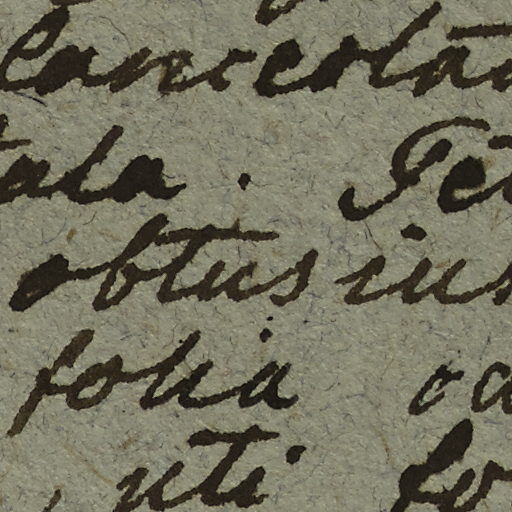 lanceola
ala. Te
obtusius
folia ca
, uti fo